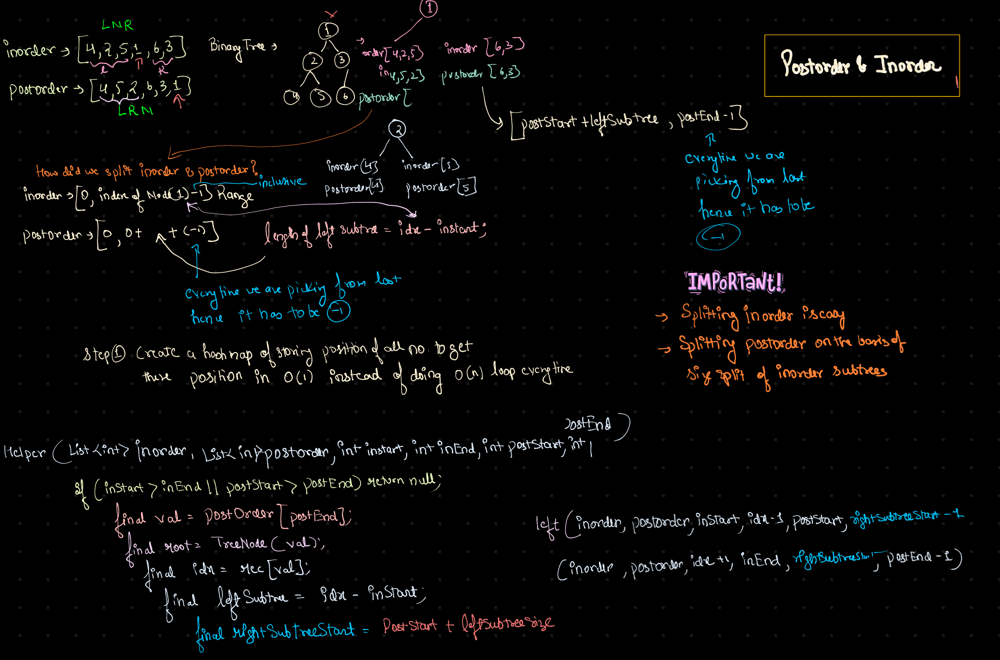 LNR
inorder → [4,2,5,1,6,3]
L R
postorder → [4,5,2,6,3,1]
LRN
Binary Tree →
1
2 3
4 5 6
1
order[4,2,5]
in4,5,2]
postorder[
inorder [6,3]
postorder [6,3]
[postStart+leftSubtree, postEnd-1]
everytime we are
picking from last
hence it has to be
-1
2
inorder[4] inorder[5]
postorder[4] postorder[5]
Postorder & Inorder
How did we split inorder & postorder?
inclusive
inorder → [0, index of Node(1)-1] Range
postorder → [0, 0+ +(-1)]
length of left subtree = idx - instart;
everytime we are picking from last
hence it has to be -1
IMPORTANT!
→ Splitting inorder is easy
→ Splitting postorder on the basis of
size split of inorder subtrees
Step 1 Create a hashmap of storing position of all no. to get
there position in O(1) instead of doing O(n) loop everytime
Helper (List<int> inorder, List<int>postorder, int instart, int inEnd, int postStart, int postEnd)
if (inStart > inEnd || postStart > postEnd) return null;
final val = postOrder[postEnd];
final root = TreeNode(val);
final idx = rec[val];
final leftSubtree = idx - inStart;
final rightSubTreeStart = PostStart + leftSubtreeSize
left (inorder, postorder, instart, idx-1, postStart, rightSubtreeStart-1
(inorder, postorder, idx+1, inEnd, postEnd-1)